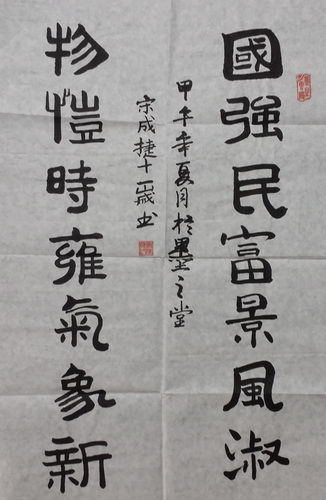 國強民富景風淑
甲午年夏月於墨之堂
宋成捷十一歲书
物愷時雍氣象新